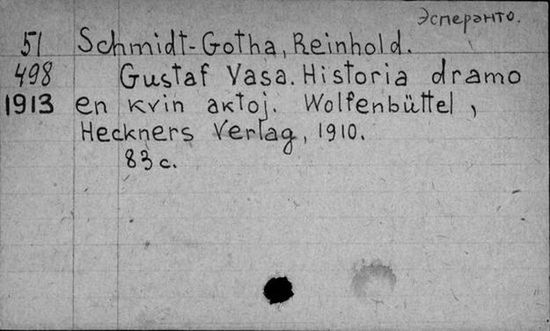 Эсперанто.
51 Schmidt-Gotha, Reinhold.
498 Gustaf Vasa. Historia dramo
1913 en kvin aktoj. Wolfenbüttel,
Heckners Verlag, 1910.
83 с.